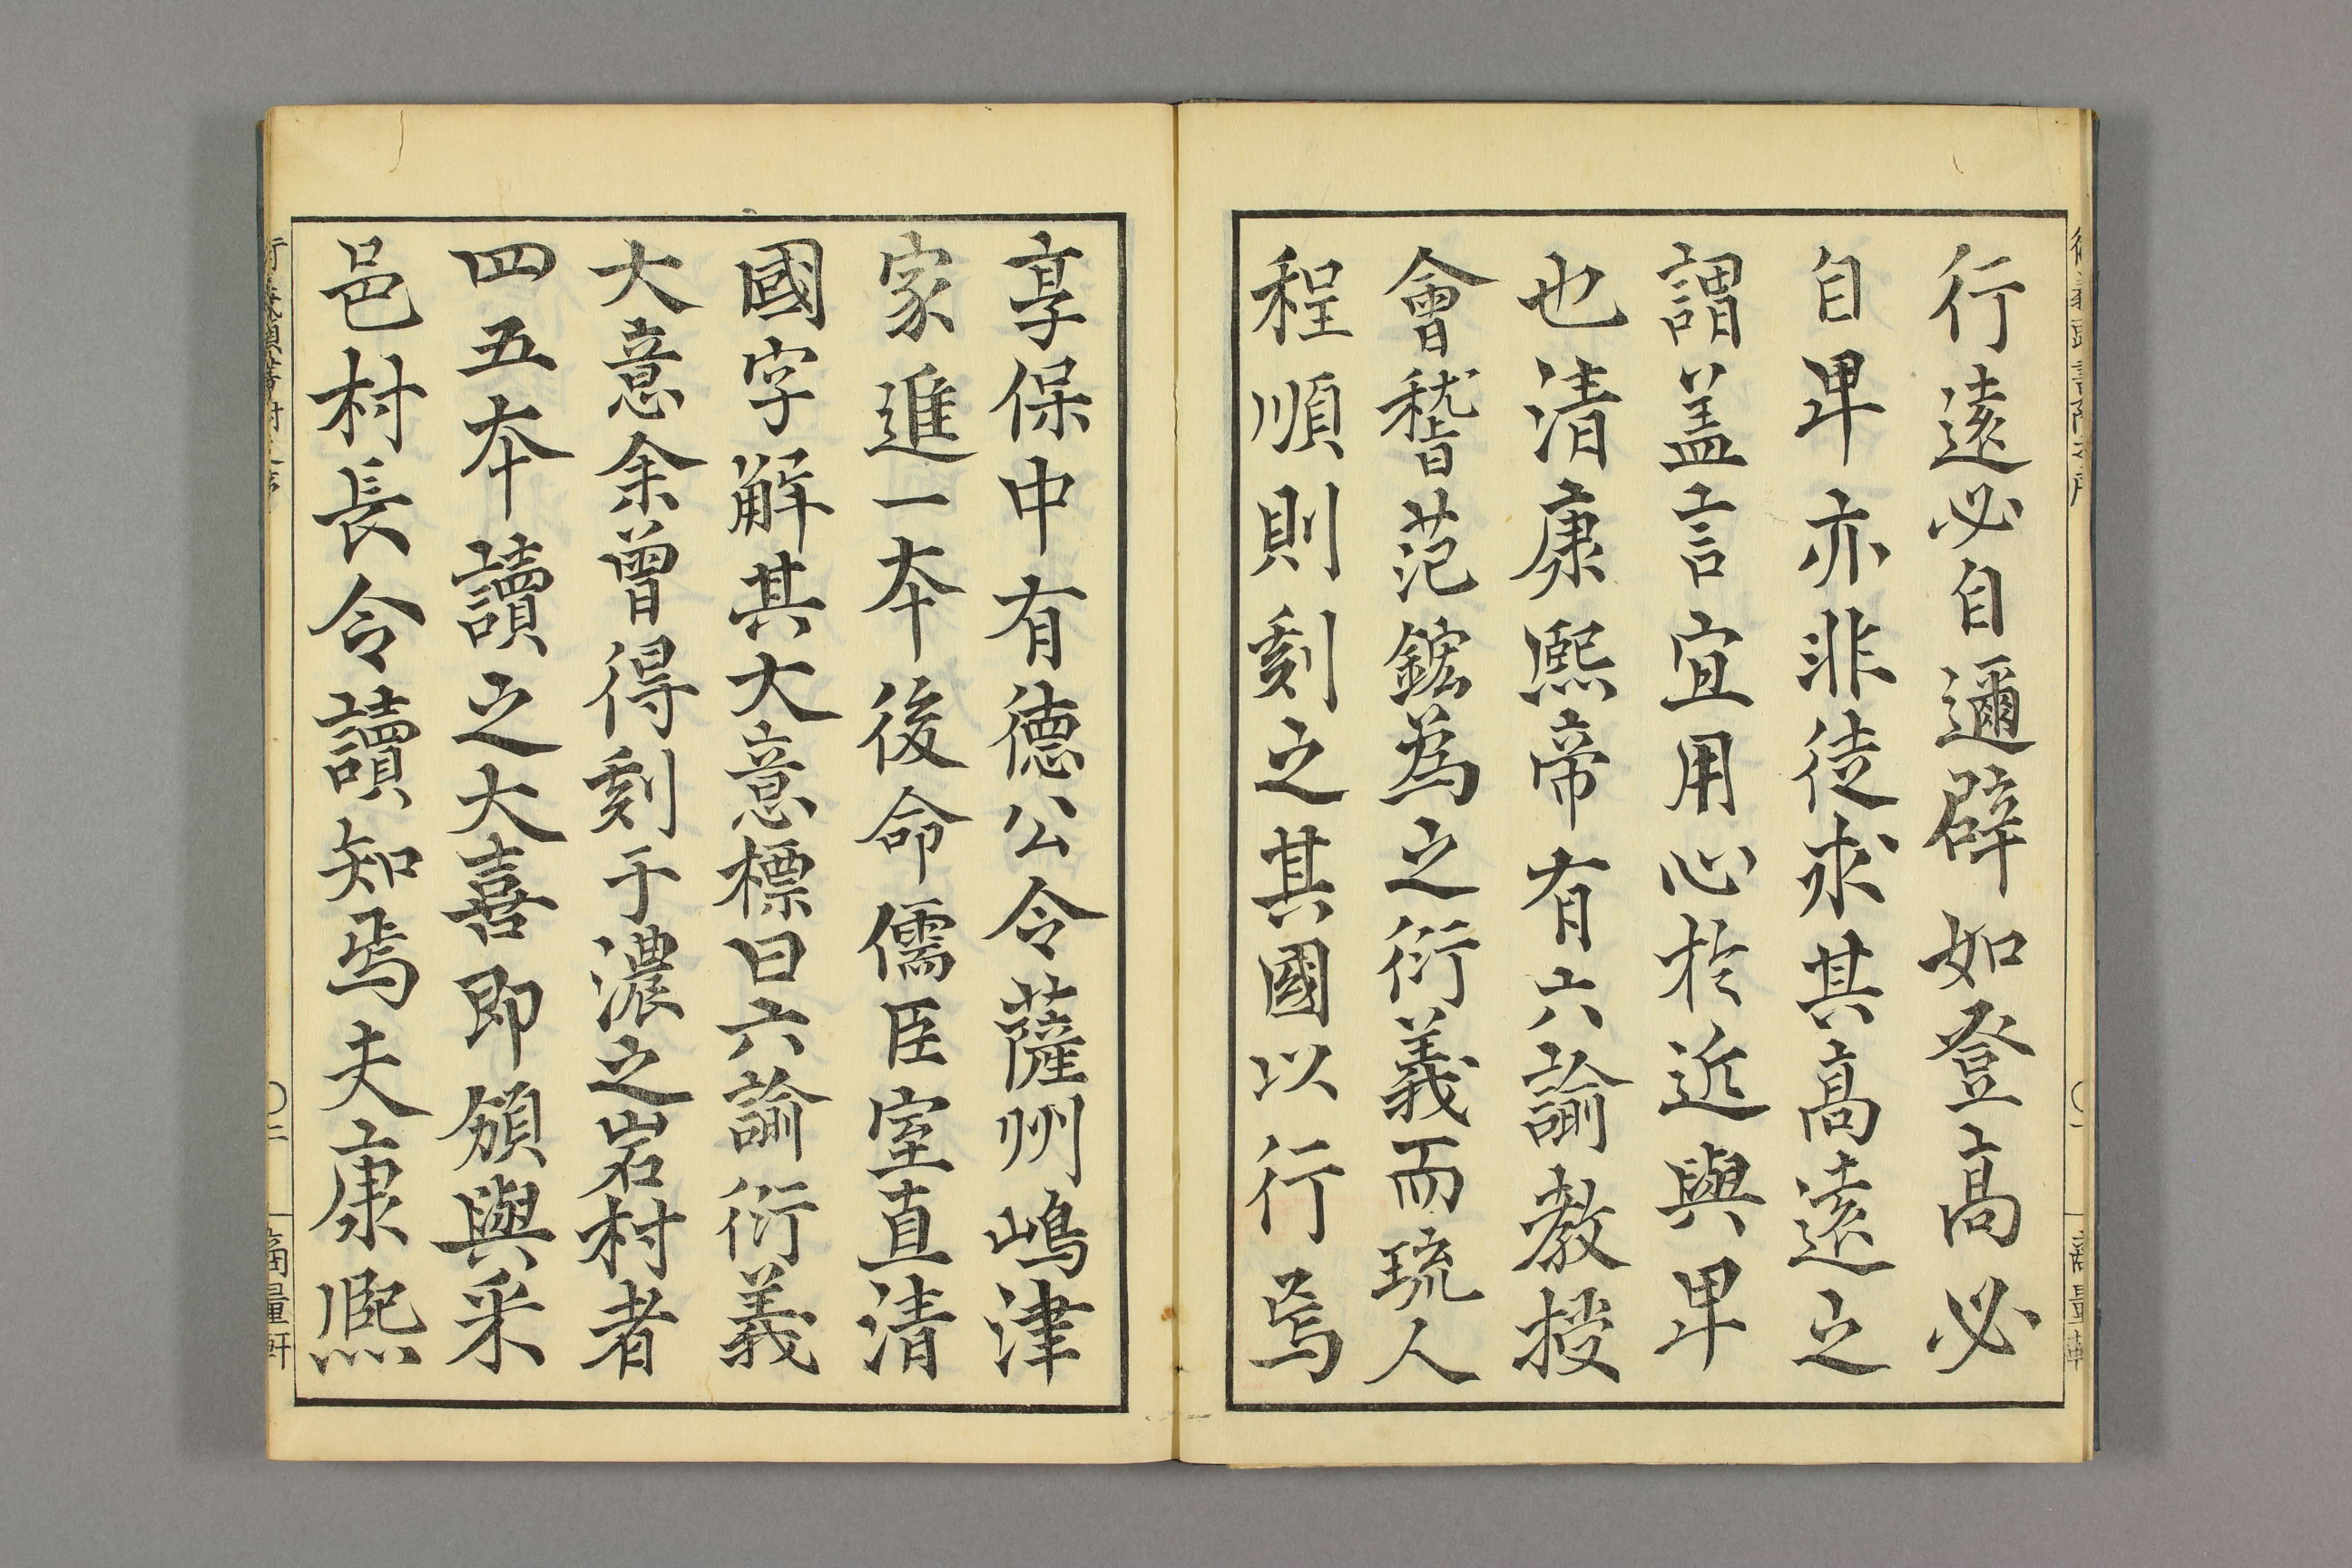 行遠必自邇辟如登高必
自卑亦非徒求其高遠之
謂盖言宜用心於近與卑
也清康熙帝有六諭教授
會稽范鋐為之衍義而琉人
程順則刻之其國以行焉
享保中有德公令薩州嶋津
家進一本後命儒臣室直清
國字解其大意標曰六諭衍義
大意余曾得刻于濃之岩村者
四五本讀之大喜即頒與采
邑村長令讀知焉夫康熈